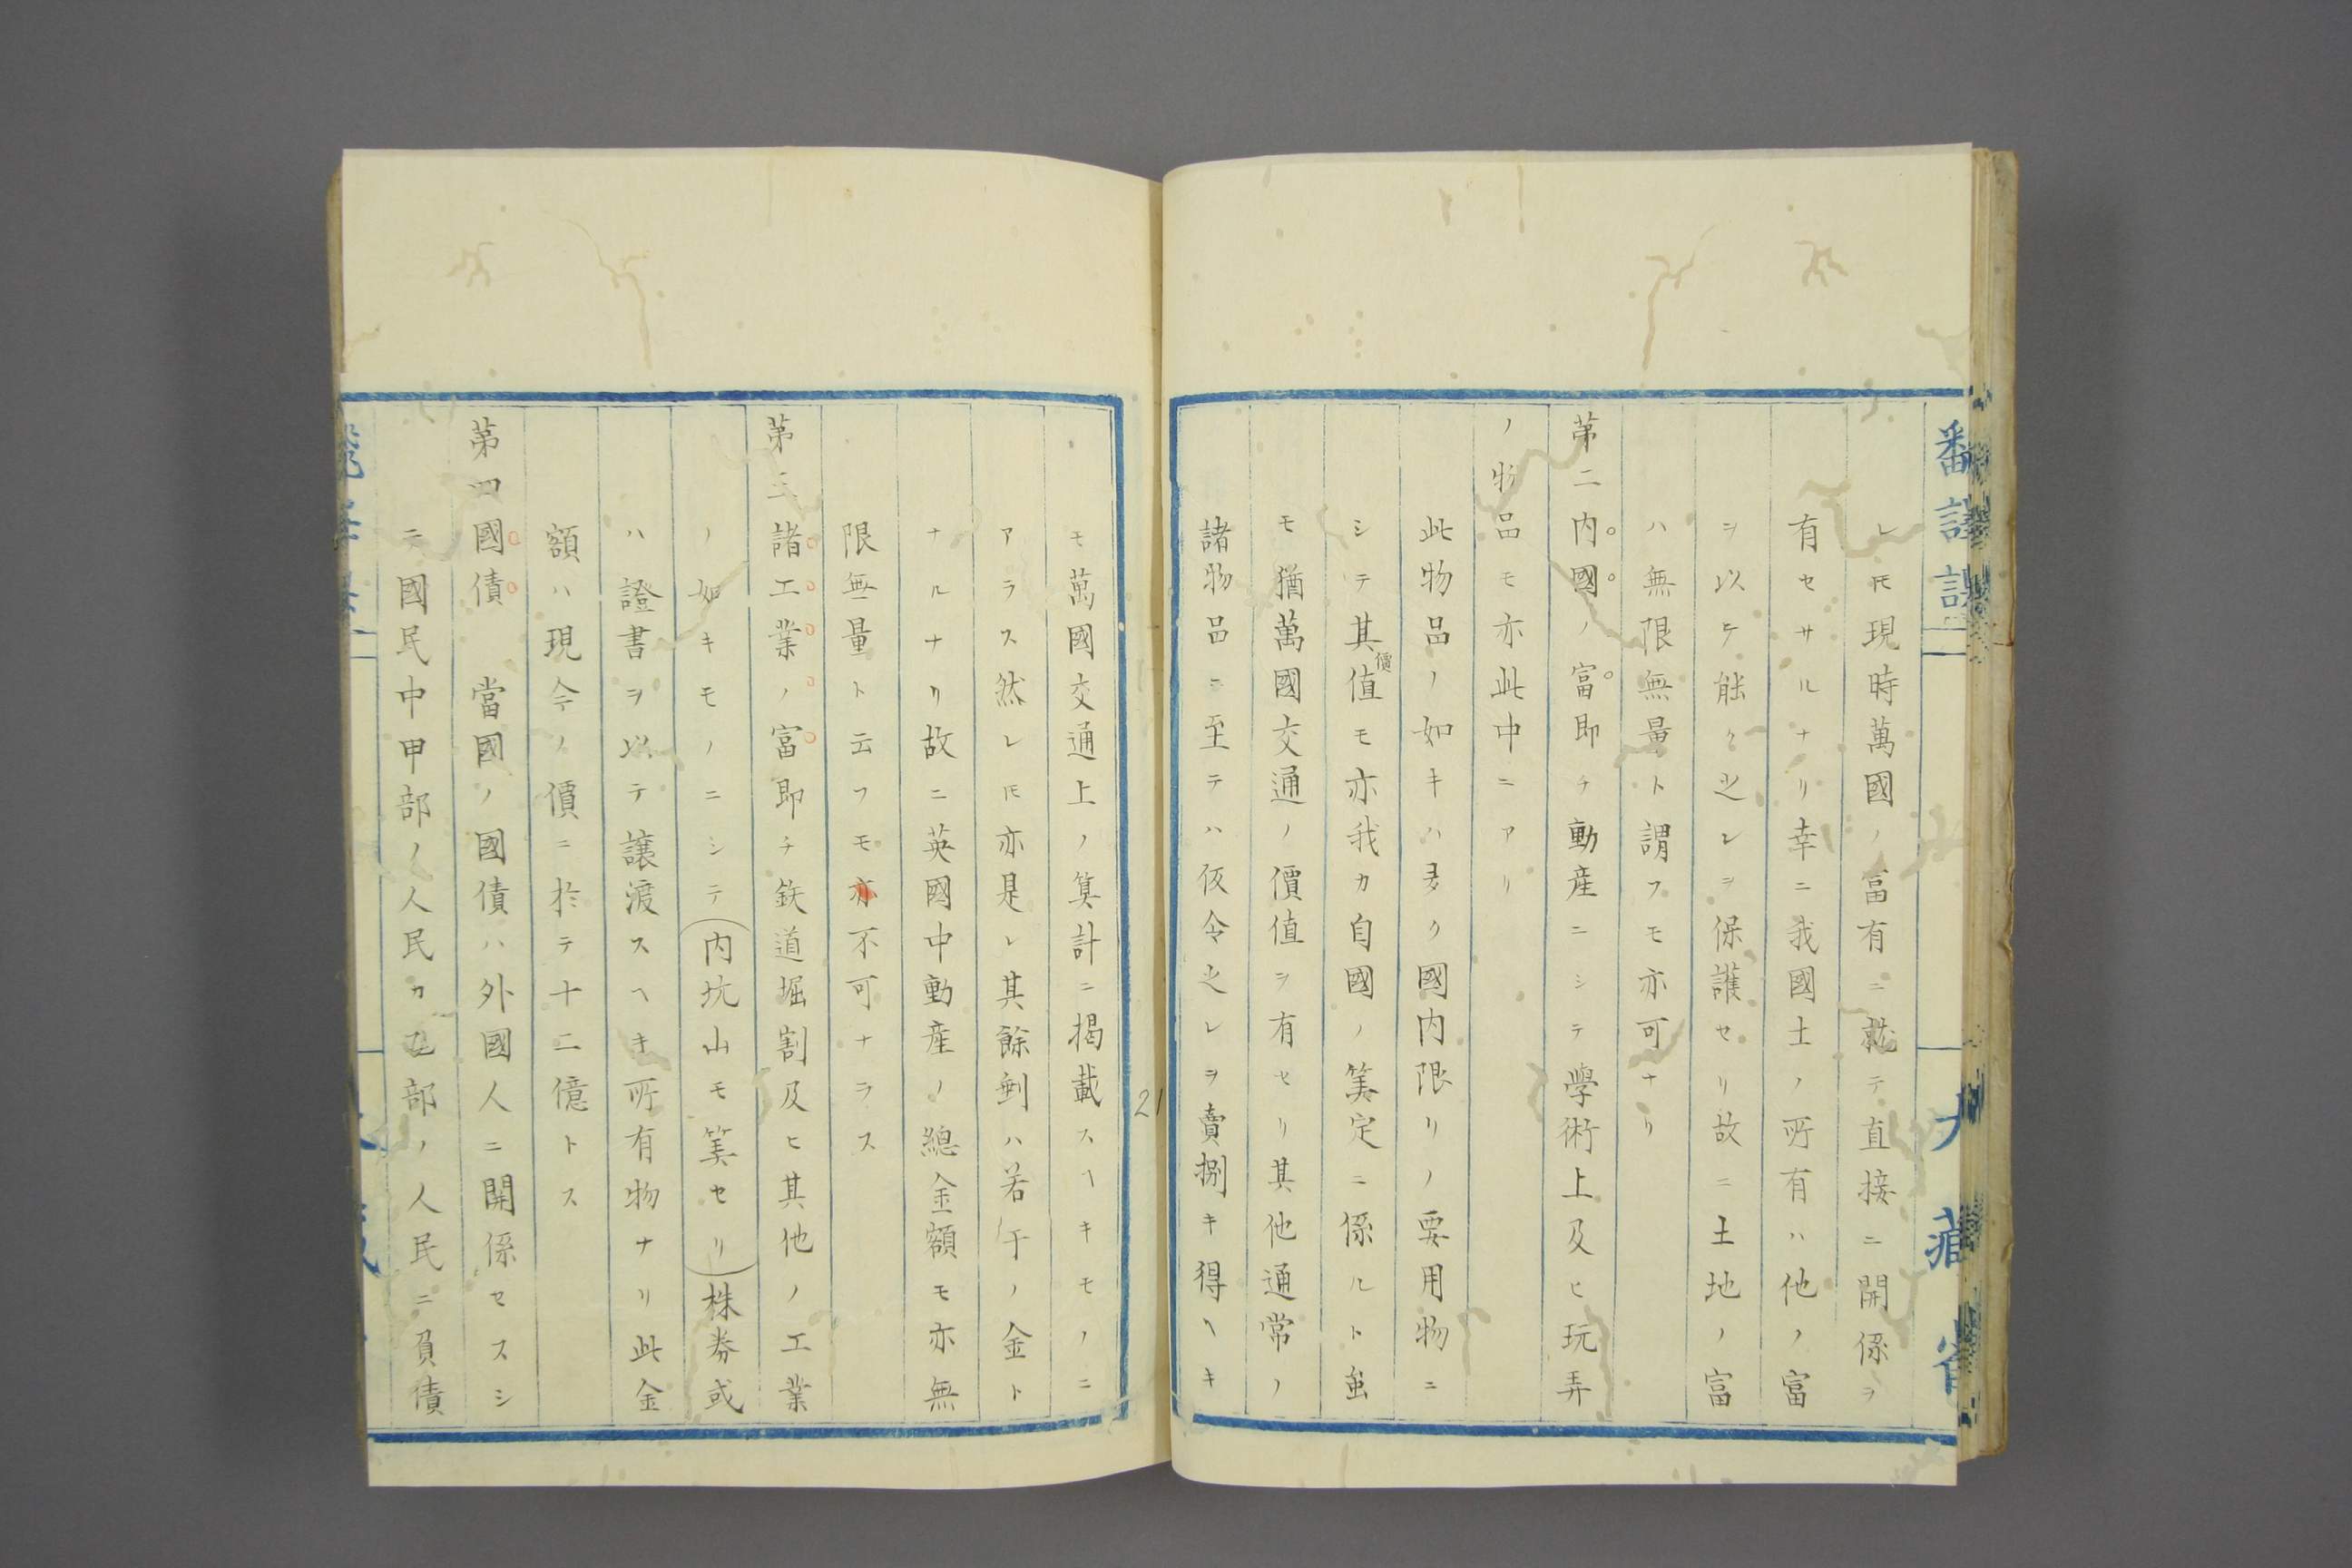 飜譯課
大藏省
レ𪜈現時萬國ノ富有ニ就テ直接ニ関係ヲ
有セサルナリ幸ニ我國土ノ所有ハ他ノ富
ヲ以テ能ク之レヲ保護セリ故ニ土地ノ富
ハ無限無量ト謂フモ亦可ナリ
第二内國ノ富即チ動産ニシテ學術上及ヒ玩弄
ノ物品モ亦此中ニアリ
此物品ノ如キハ多ク國内限リノ要用物ニ
シテ其値モ亦我カ自國ノ算定ニ係ルト雖
價
モ猶萬國交通ノ價値ヲ有セリ其他通常ノ
諸物品ニ至テハ仮令之レヲ賣捌キ得ヘキ
21
モ萬國交通上ノ算計ニ掲載スヘキモノニ
アラス然レ𪜈亦是レ其餘剰ハ若干ノ金ト
ナルナリ故ニ英國中動産ノ總金額モ亦無
限無量ト云フモ亦不可ナラス
第三諸工業ノ富即チ鉄道堀割及ヒ其他ノ工業
ノ如キモノニシテ(内坑山モ算セリ)株券或
ハ證書ヲ以テ譲渡スヘキ所有物ナリ此金
額ハ現今ノ價ニ於テ十二億トス
第四國債 當國ノ國債ハ外國人ニ関係セスシ
テ國民中甲部ノ人民カ乙部ノ人民ニ負債